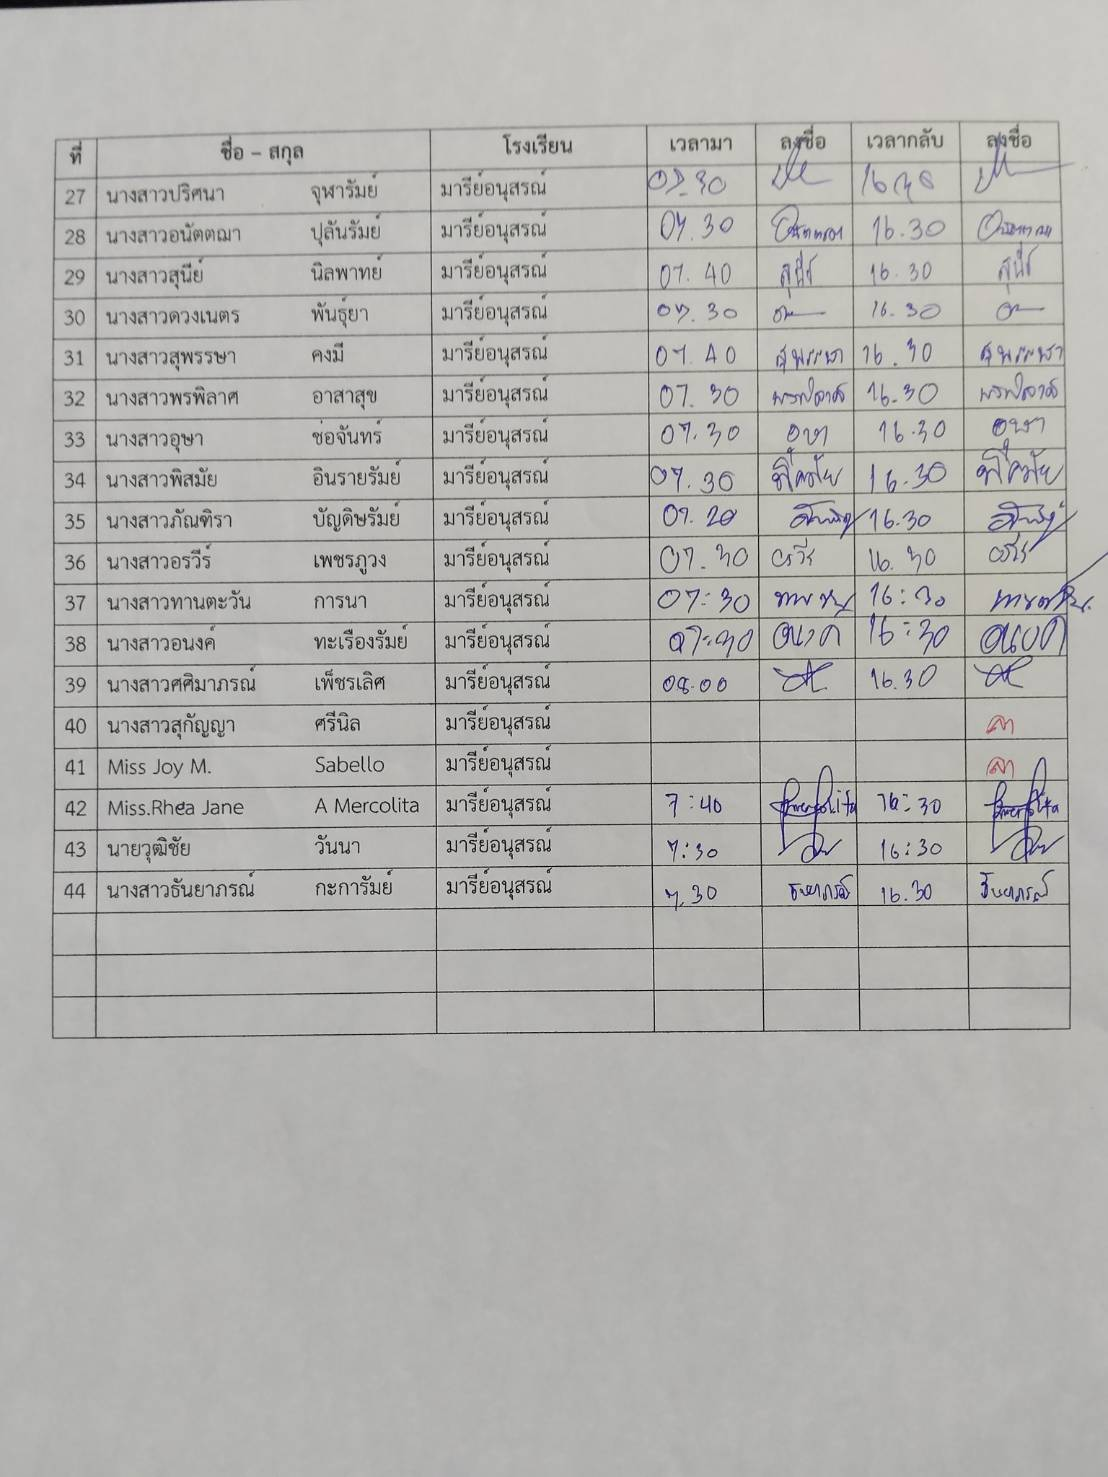 ที่ ชื่อ - สกุล โรงเรียน เวลามา ลงชื่อ เวลากลับ ลงชื่อ
27 นางสาวปริศนา จุฬารัมย์ มารีย์อนุสรณ์ 07.30
28 นางสาวอนัตตฌา ปุลันรัมย์ มารีย์อนุสรณ์ 07.30 16.30
29 นางสาวสุนีย์ นิลพาทย์ มารีย์อนุสรณ์ 07.40 สุนีย์ 16.30 สุนีย์
30 นางสาวดวงเนตร พันธุ์ยา มารีย์อนุสรณ์ 07.30 16.30
31 นางสาวสุพรรษา คงมี มารีย์อนุสรณ์ 07.40 สุพรรษา 16.30 สุพรรษา
32 นางสาวพรพิลาศ อาสาสุข มารีย์อนุสรณ์ 07.30 พรพิลาศ 16.30 พรพิลาศ
33 นางสาวอุษา ช่อจันทร์ มารีย์อนุสรณ์ 07.30 อุษา 16.30 อุษา
34 นางสาวพิสมัย อินรายรัมย์ มารีย์อนุสรณ์ 07.30 พิสมัย 16.30 พิสมัย
35 นางสาวภัณฑิรา บัญดิษรัมย์ มารีย์อนุสรณ์ 07.20 16.30
36 นางสาวอรวีร์ เพชรภูวง มารีย์อนุสรณ์ 07.30 16.30
37 นางสาวทานตะวัน การนา มารีย์อนุสรณ์ 07:30 16:30
38 นางสาวอนงค์ ทะเรืองรัมย์ มารีย์อนุสรณ์ 07:30 อนงค์ 16:30 อนงค์
39 นางสาวศศิมาภรณ์ เพ็ชรเลิศ มารีย์อนุสรณ์ 08.00 16.30
40 นางสาวสุกัญญา ศรีนิล มารีย์อนุสรณ์ ลา
41 Miss Joy M. Sabello มารีย์อนุสรณ์ ลา
42 Miss.Rhea Jane A Mercolita มารีย์อนุสรณ์ 7:40 16:30
43 นายวุฒิชัย วันนา มารีย์อนุสรณ์ 7:30 16:30
44 นางสาวธันยาภรณ์ กะการัมย์ มารีย์อนุสรณ์ 7.30 ธันยาภรณ์ 16.30 ธันยาภรณ์